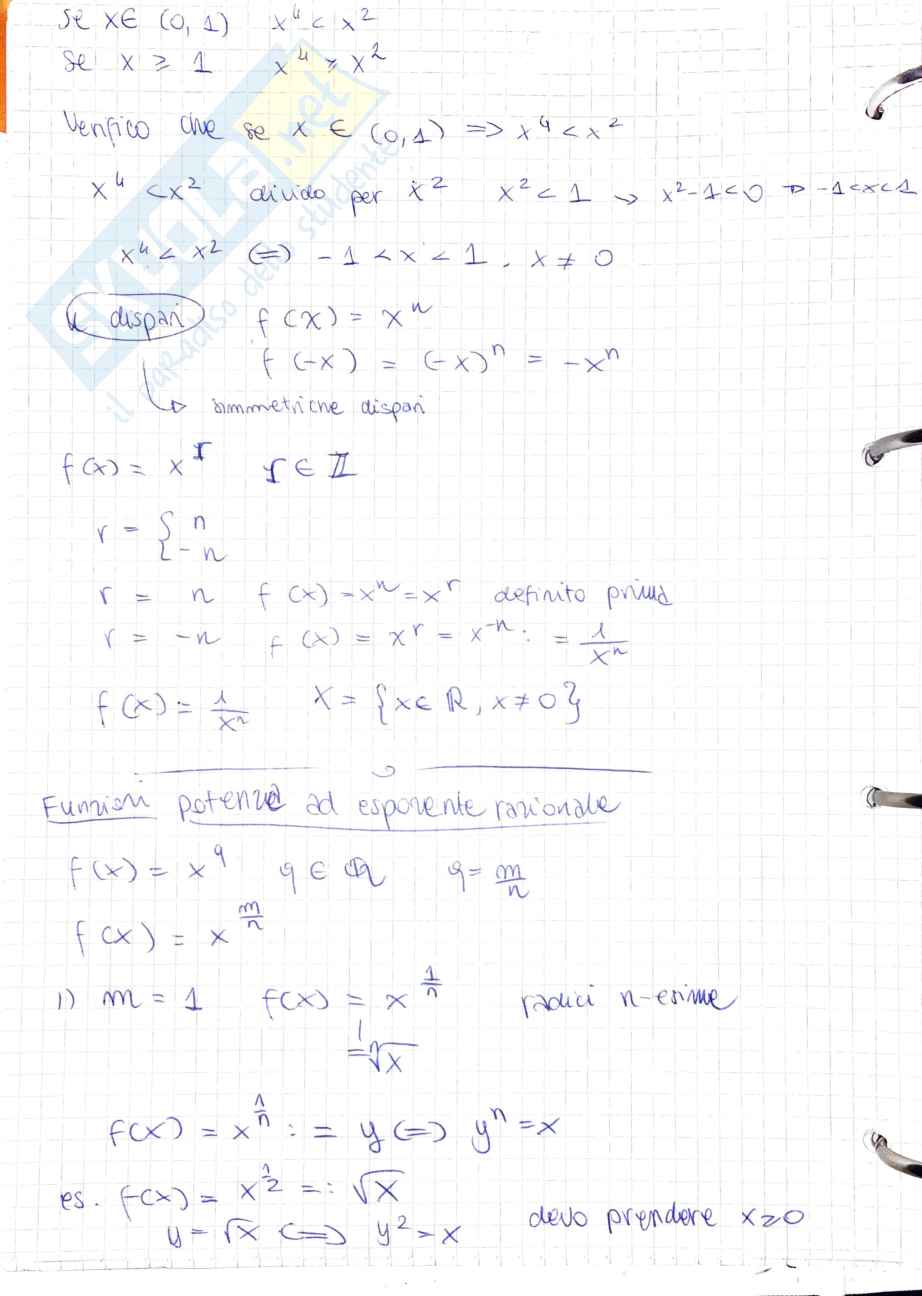 se x∈ (0, 1) x⁴ < x²
se x ≥ 1 x⁴ ≥ x²
Verifico che se x ∈ (0,1) => x⁴ < x²
x⁴ < x² divido per x² x² < 1 → x²-1<0 → -1<x<1
x⁴ < x² <=> -1 < x < 1, x ≠ 0
n dispari f(x) = xⁿ
f(-x) = (-x)ⁿ = -xⁿ
simmetriche dispari
f(x) = x^r r ∈ Z
r = { n
-n
r = n f(x) = xⁿ = x^r definito prima
r = -n f(x) = x^r = x^-n := 1/xⁿ
f(x) = 1/xⁿ X = {x∈ R, x≠0}
Funzioni potenza ad esponente razionale
f(x) = x^q q ∈ Q q = m/n
f(x) = x^(m/n)
1) m = 1 f(x) = x^(1/n) radici n-esime
= ⁿ√x
f(x) = x^(1/n) := y <=> yⁿ = x
es. f(x) = x^(1/2) =: √x
y = √x <=> y² = x devo prendere x≥0
SKUOLA.net
il paradiso dello studente